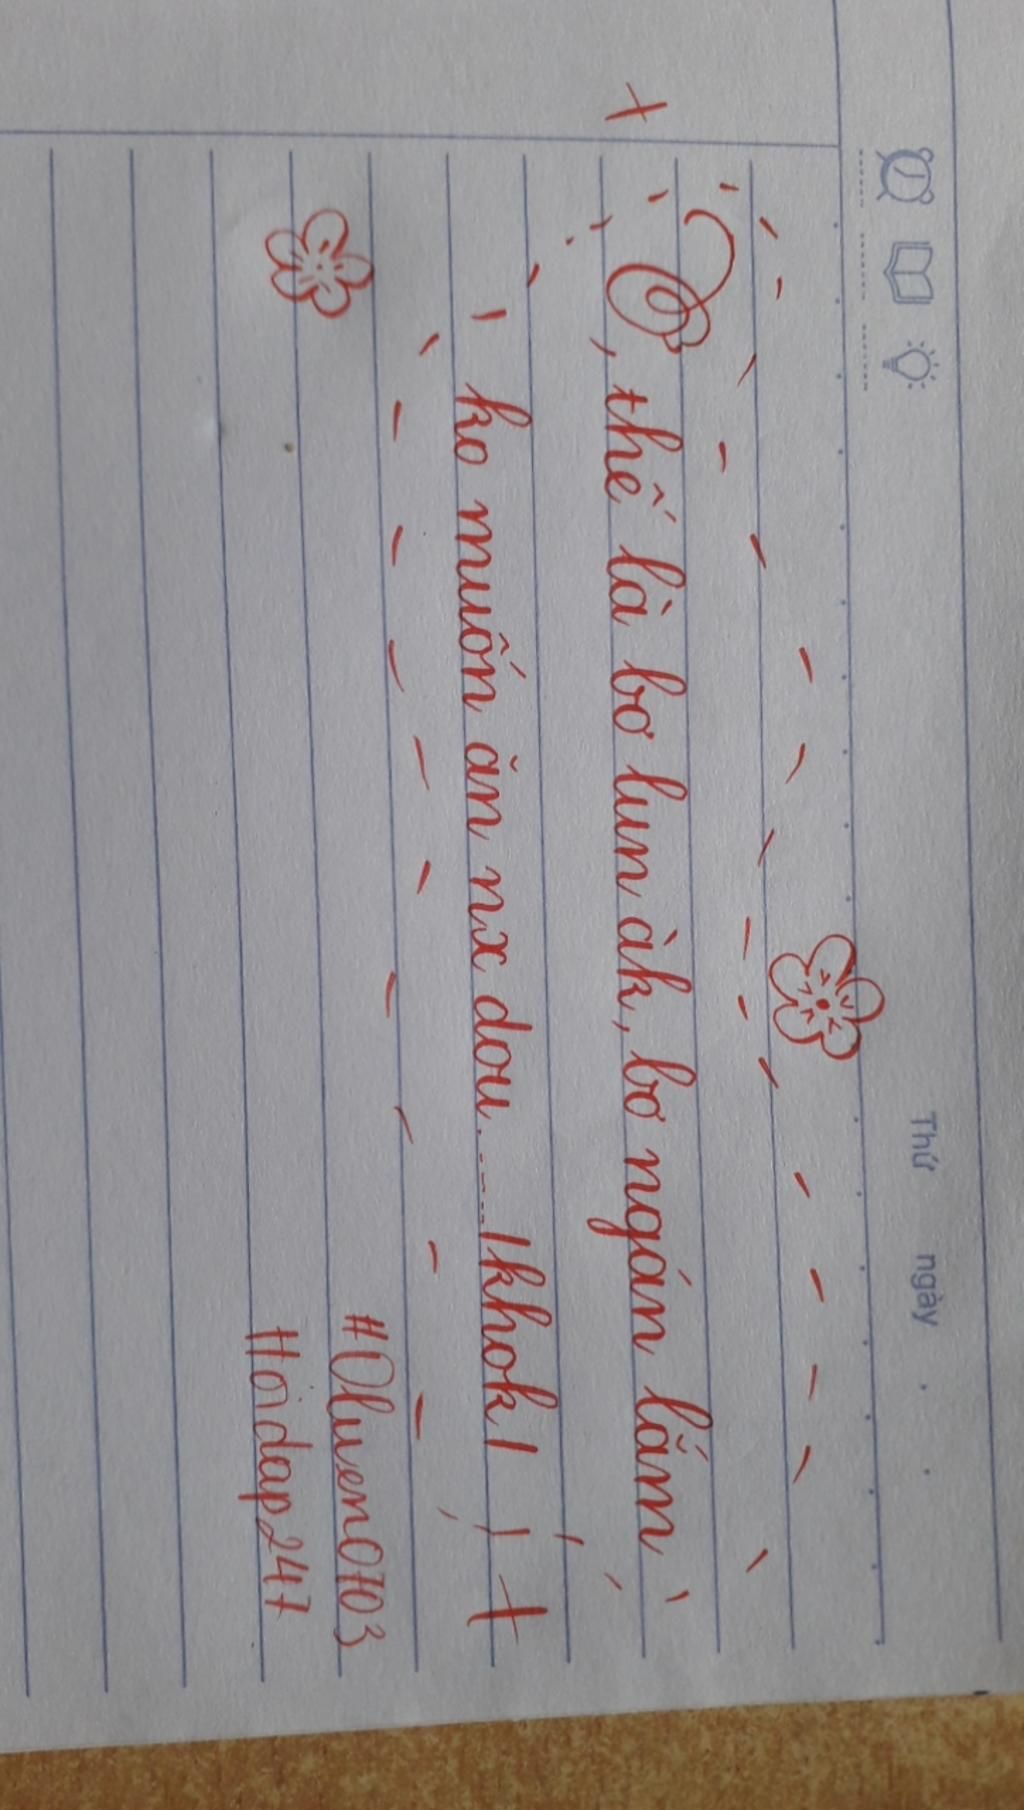 Thứ ngày . .
Ơ, thế là bơ lun àk, bơ ngán lắm
ko muốn ăn nx dou........1khok1
#Oluen0703
#oidap247